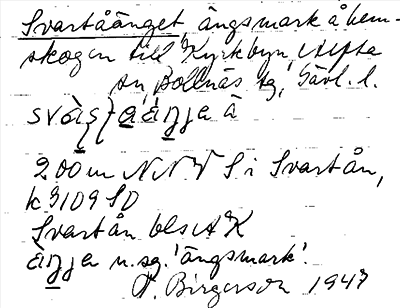 Svartåänget ängsmark å hem-
skogen till Kyrkbyn, Alfta
sn, Bollnäs tg, Gävl. l.
svàʂʈaáŋ̣ja â
200 m N N V S i Svartån,
k 9109 SD
Svartån bls A K
äŋja n. sg. 'ängsmark'.
F. Birgerson 1947